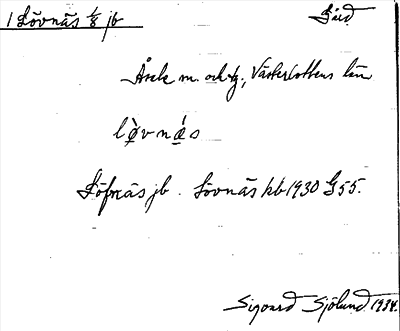 1 Lövnäs 1/8 jb
Åsele m. och tg., Västerbottens län
lövnäs
Löfnäs jb. Lövnäs kb 1930 G 55.
Sigvard Sjölund 1934.